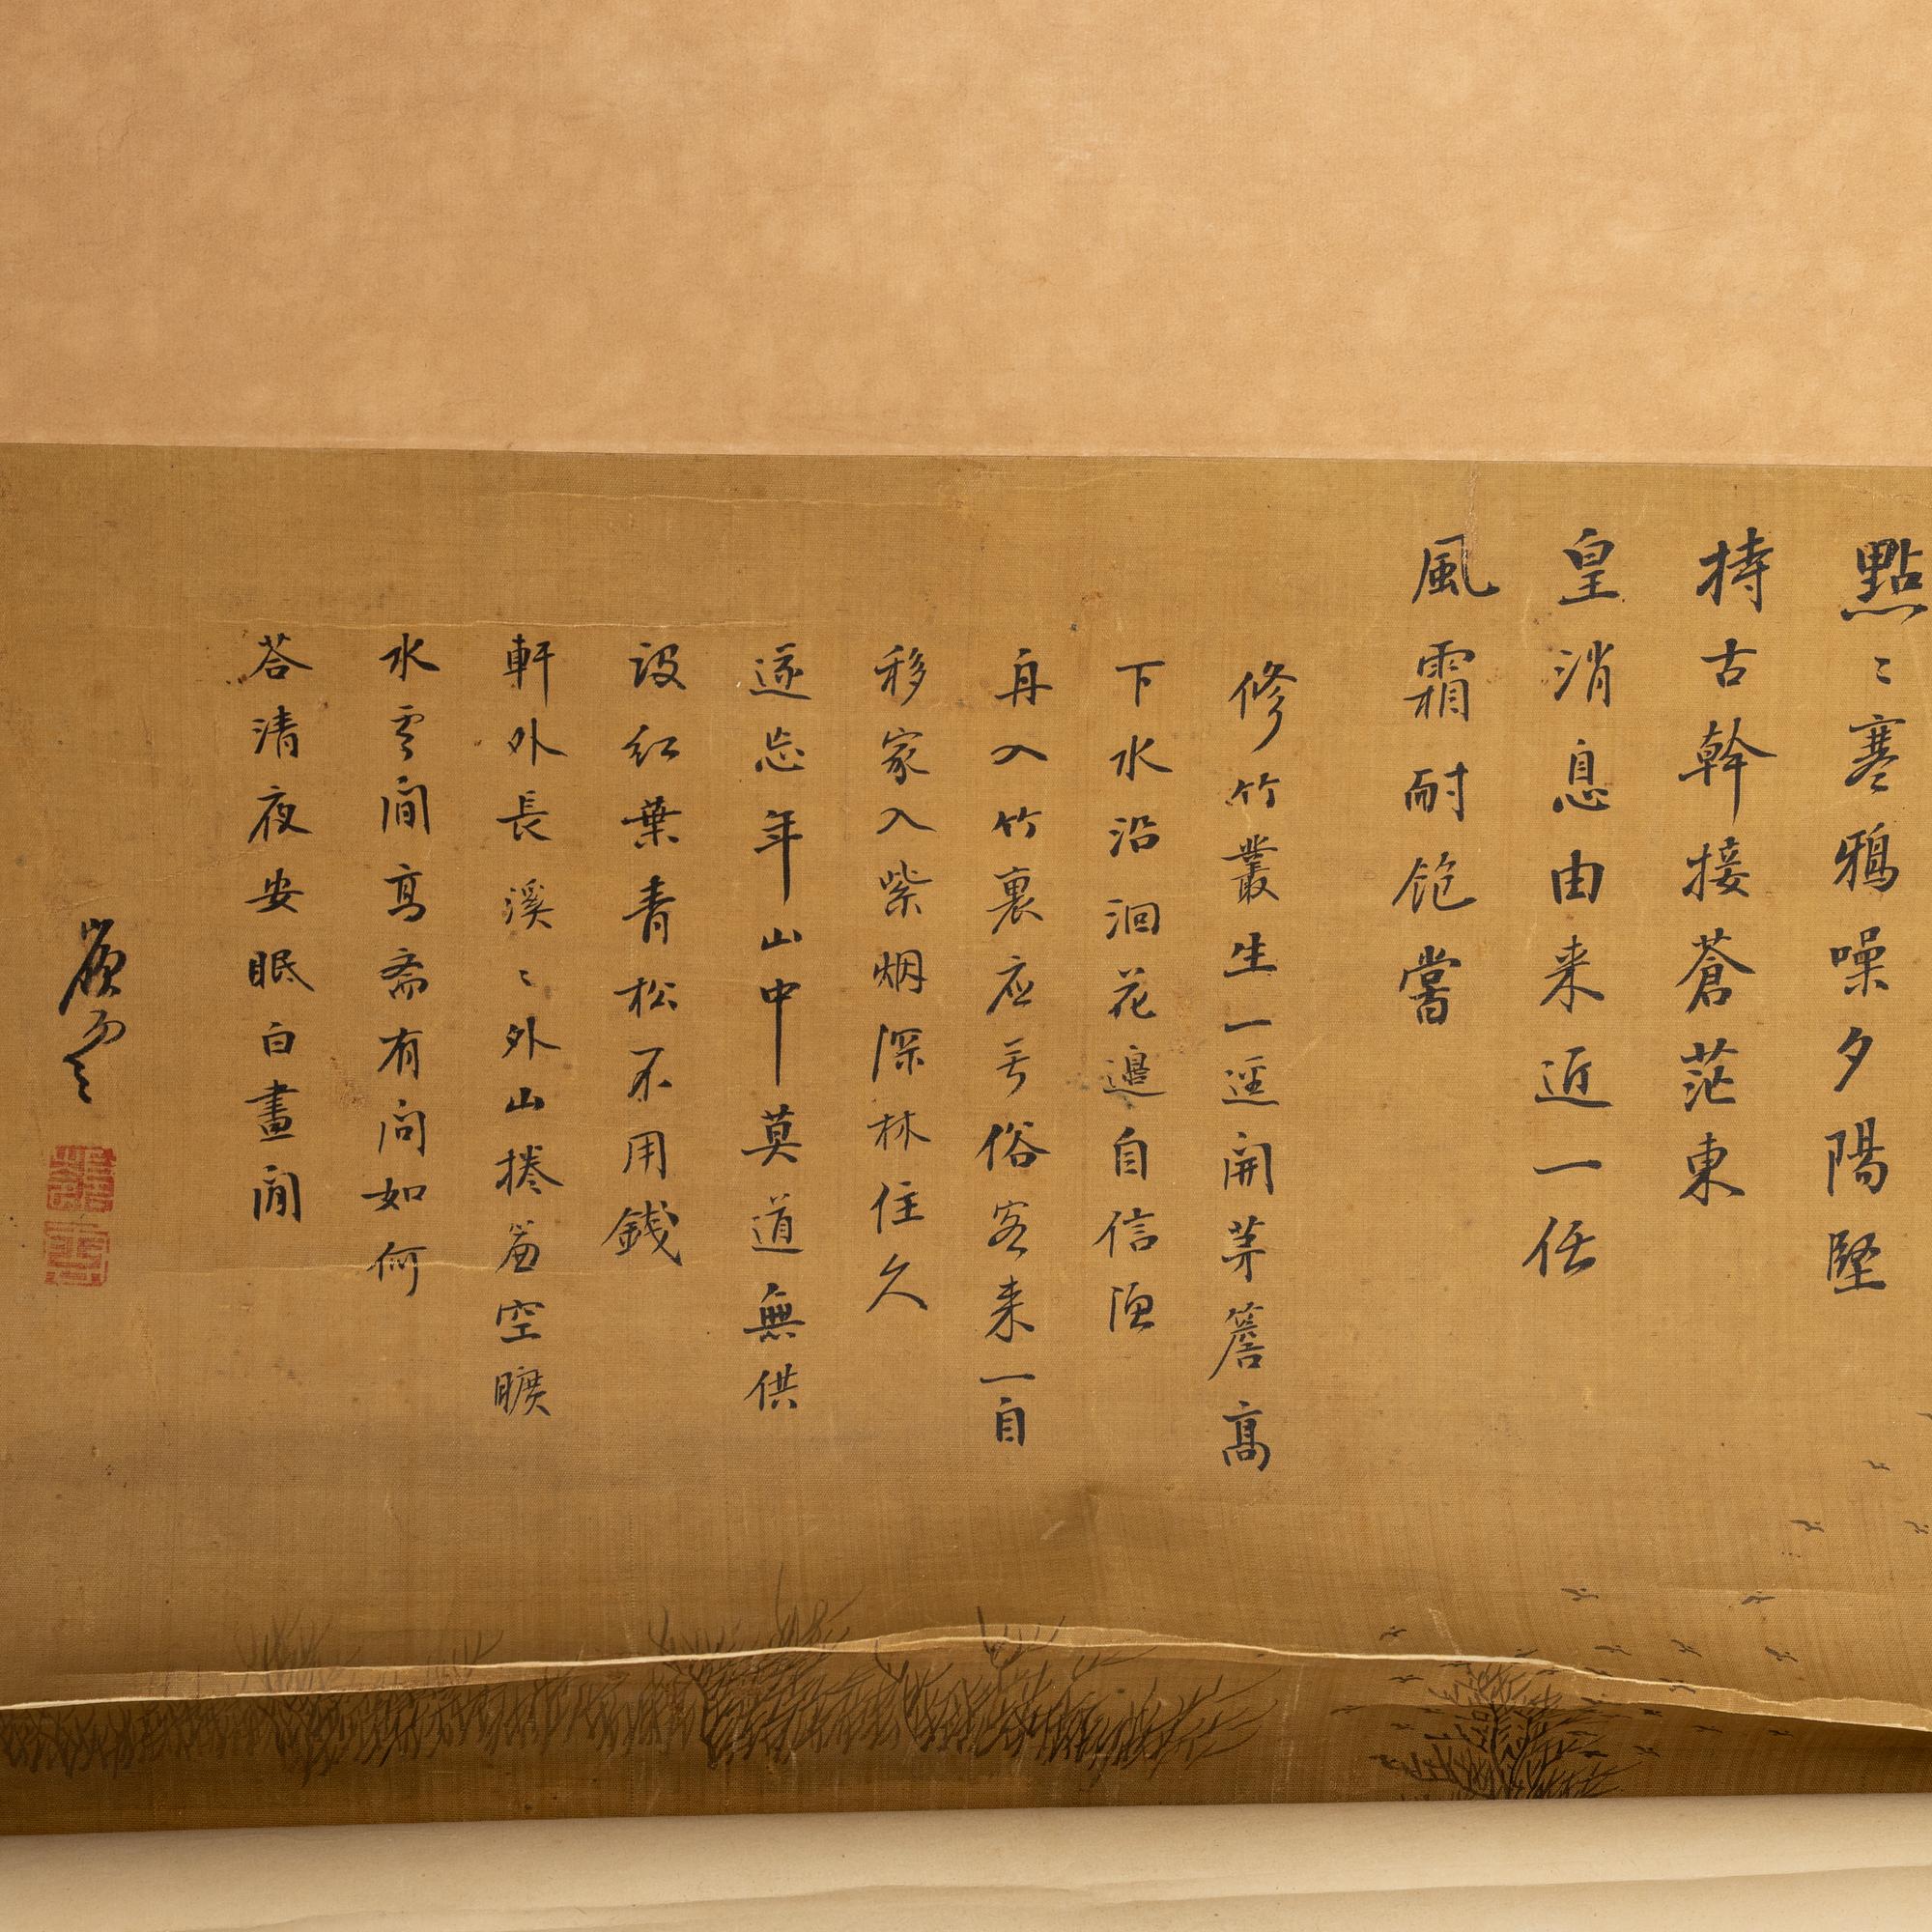 點〻寒鴉噪夕陽堅
持古幹接蒼茫東
皇消息由来近一任
風霜耐飽嘗
修竹叢生一逕開茅簷高
下水沿洄花邊自信漁
舟入竹裏应无俗客来一自
移家入紫烟深林住久
遂忘年山中莫道無供
設紅葉青松不用錢
軒外長溪〻外山捲簾空曠
水雲间高斋有问如何
荅清夜安眠白晝閒